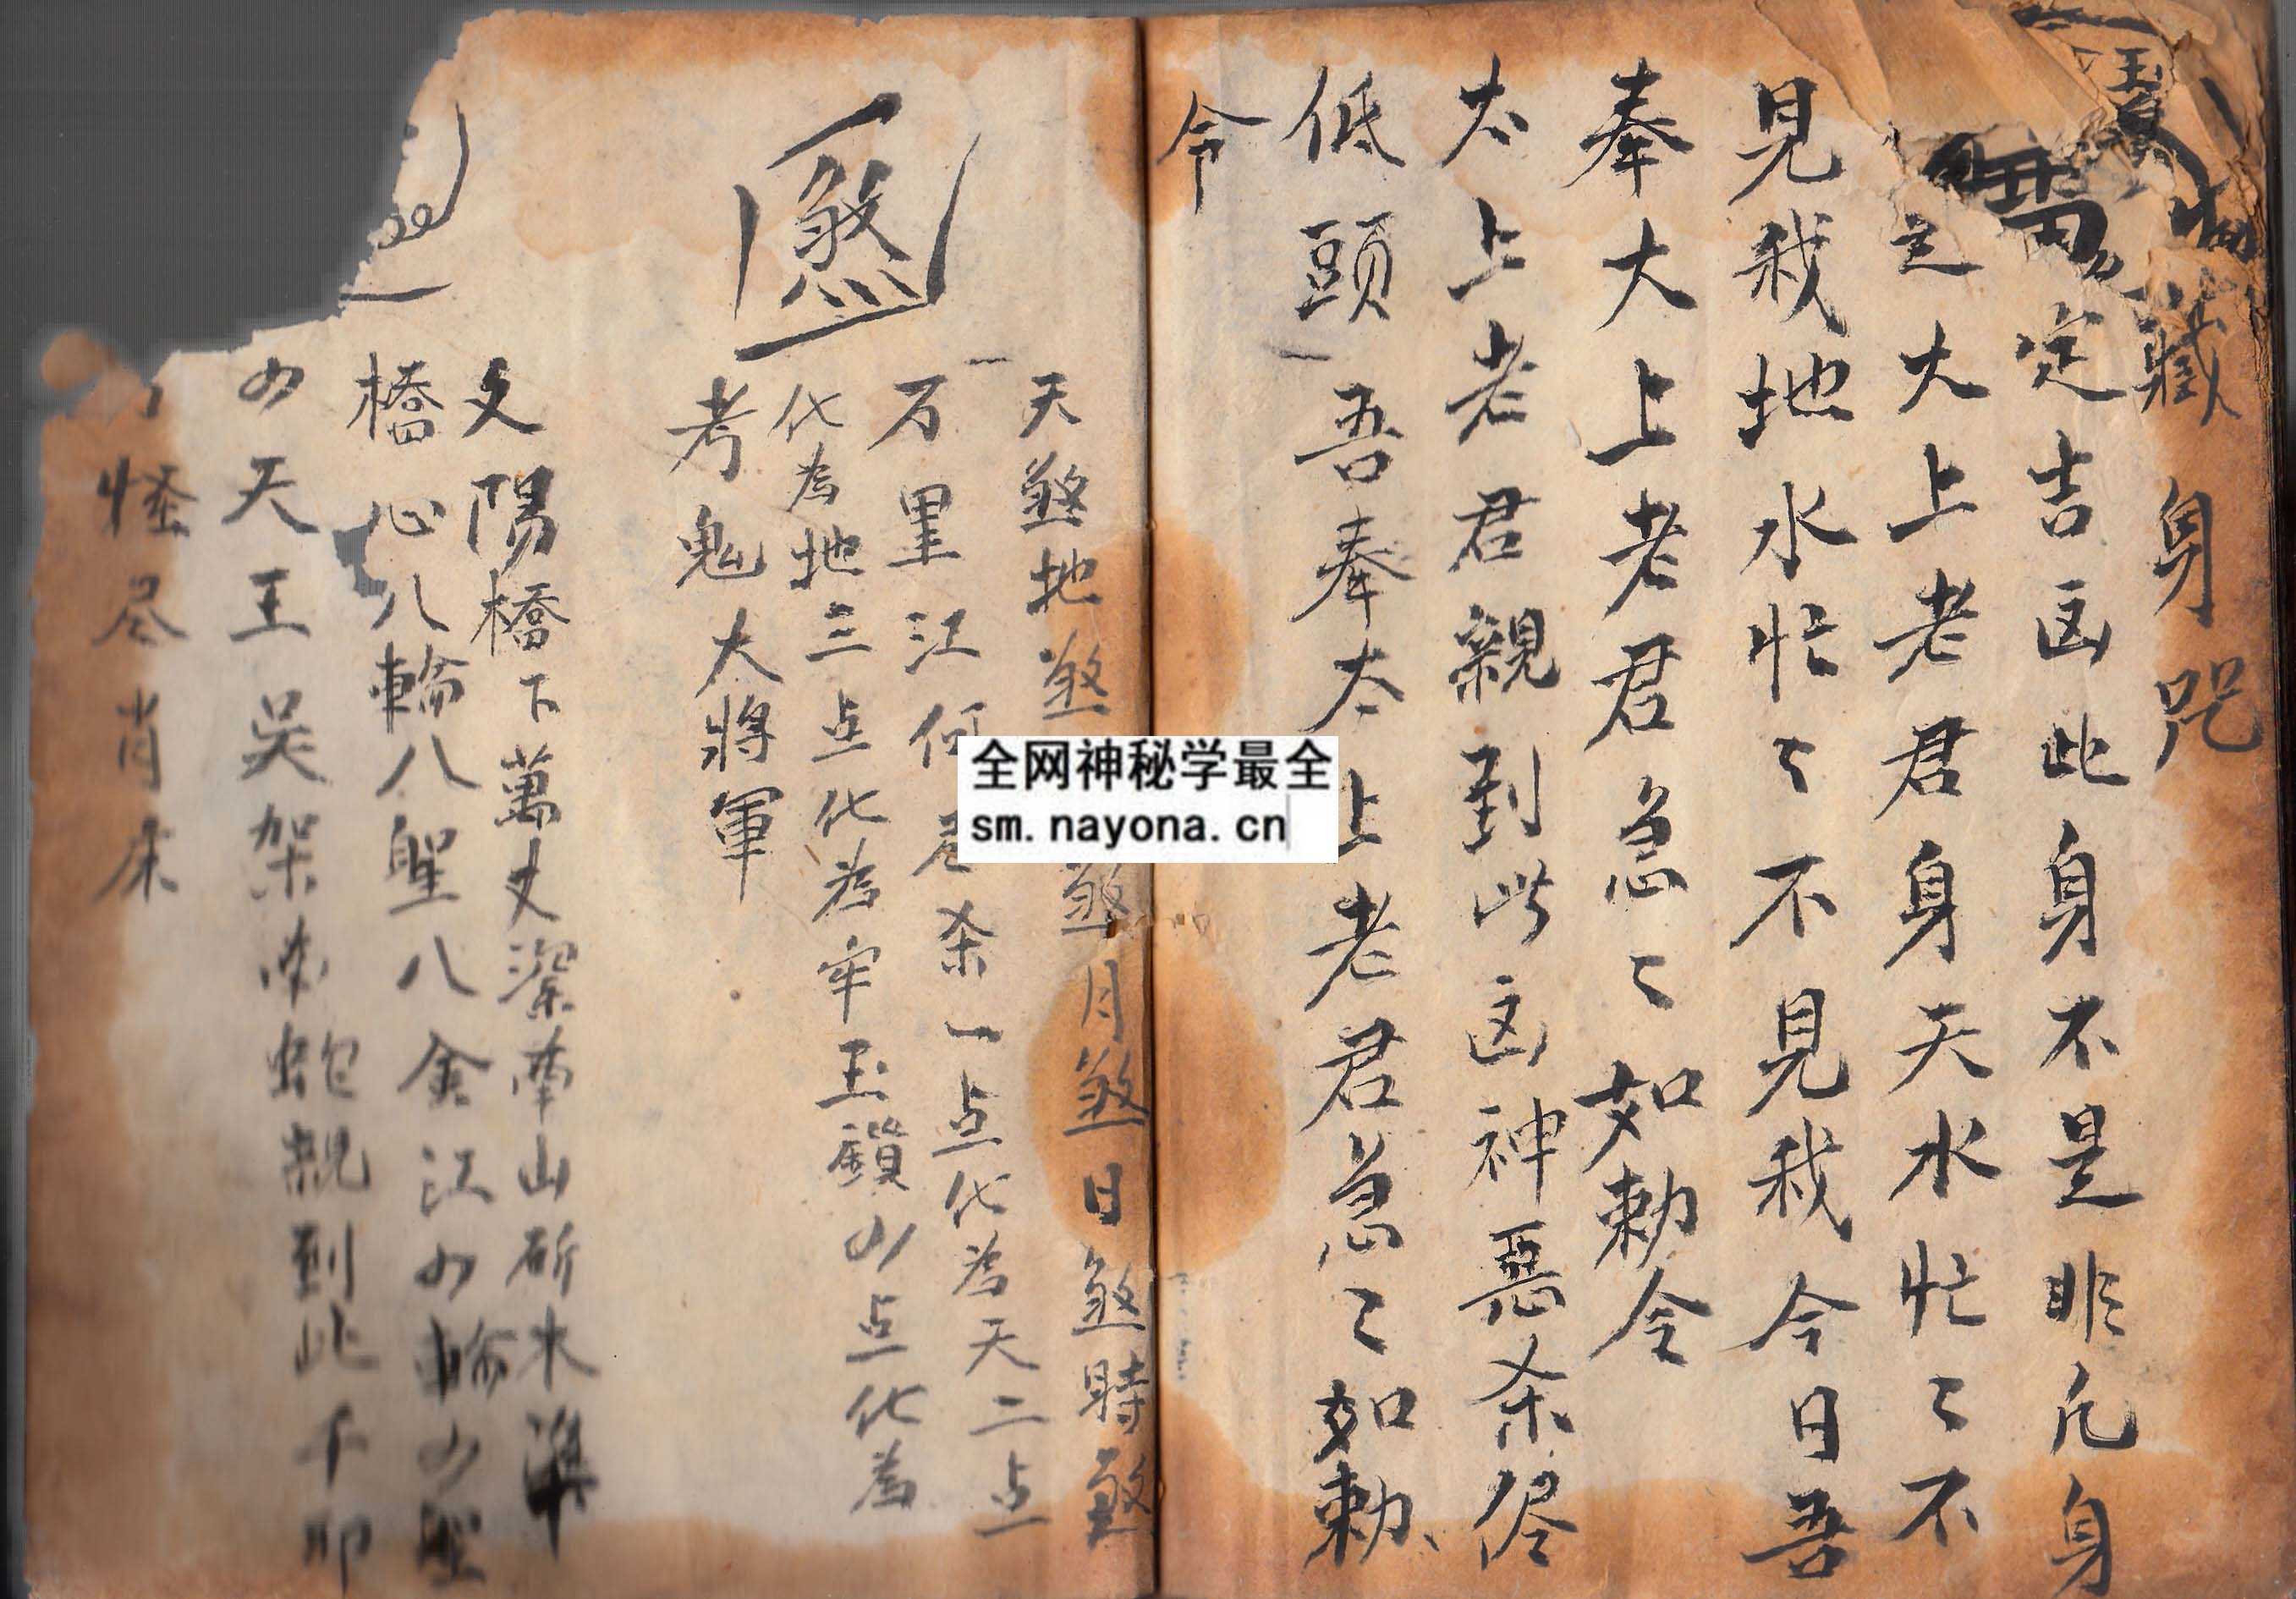 藏身咒
定吉凶此身不是非凡身
之大上老君身天水忙〻不
見我地水忙〻不見我今日吾
奉大上老君急〻如勅令
太上老君親到此凶神惡杀侭
低頭吾奉太上老君急〻如勅
令
天煞地煞煞月煞日煞時煞
万里江何杀一点化為天二点
化為地三点化為牢玉鎖四点化為
考鬼大將軍
煞
文陽橋下萬丈深南山斫木準
橋心八輪八聖八金江四輪四聖
四天王吴架南蛇親到此千卯
怪尽肖床
全网神秘学最全
sm.nayona.cn